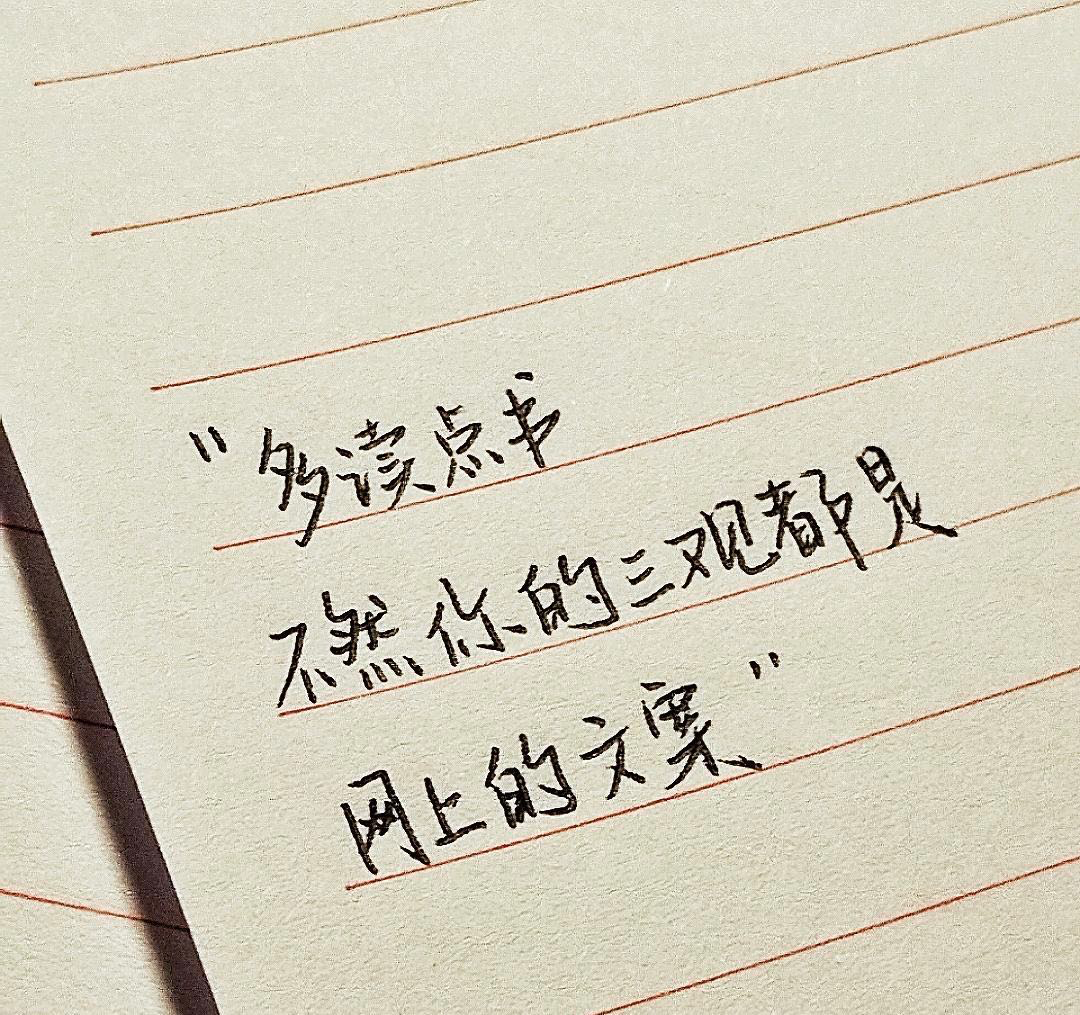 "多读点书
不然你的三观都是
网上的文案"